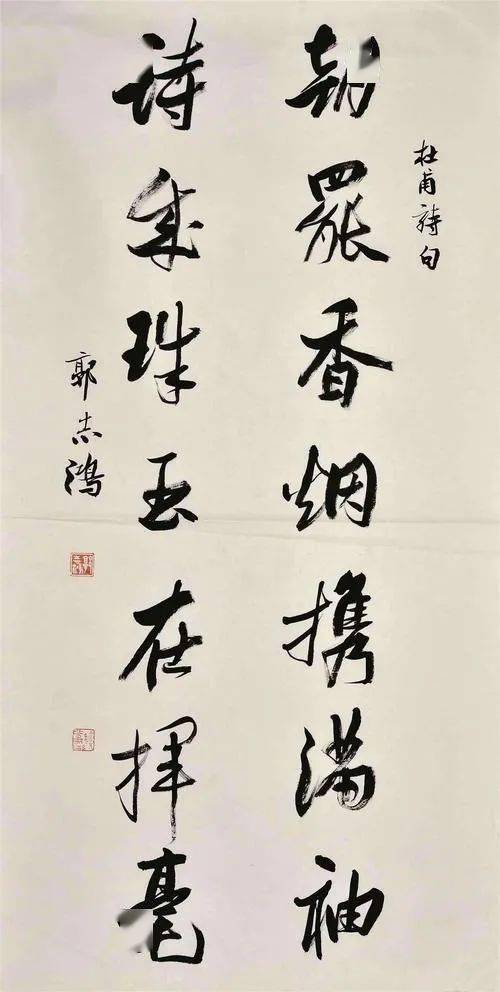 杜甫詩句
朝罷香烟携满袖
诗成珠玉在揮毫
郭志鸿